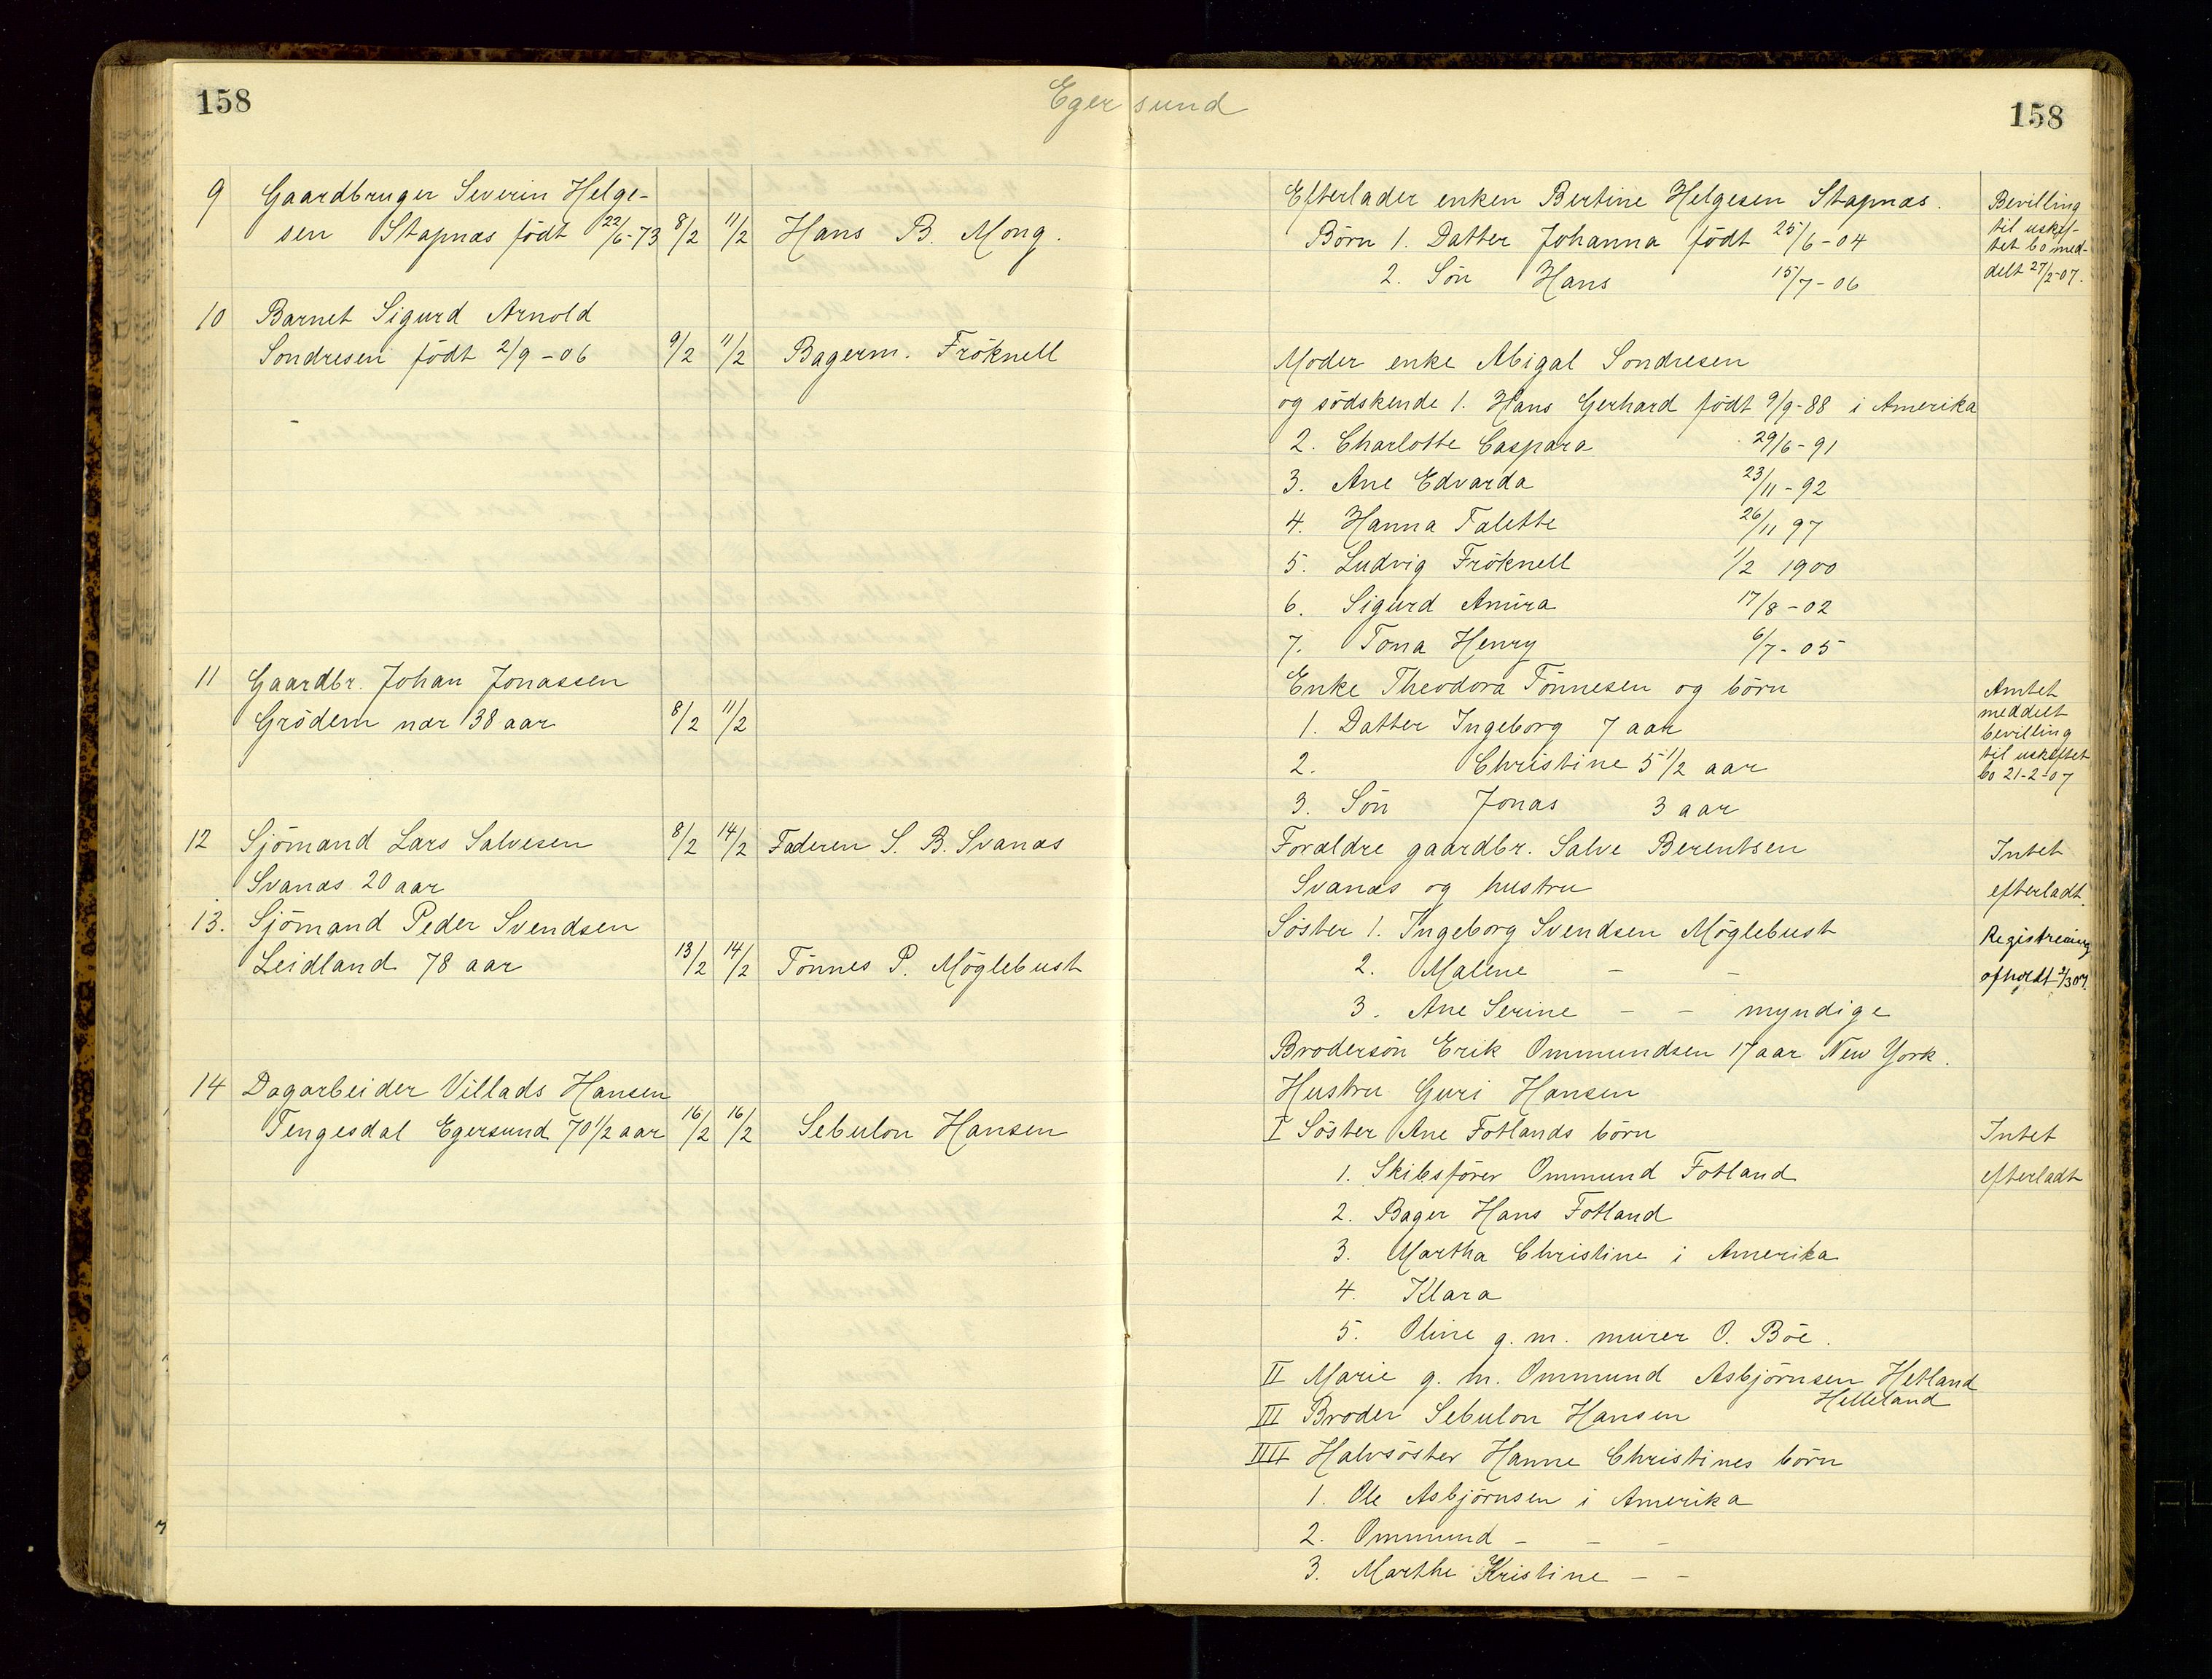 158
Egersund
158
9 Gaardbruger Severin Helge-
sen Stapnæs født 22/6-73 8/2 11/2 Hans B. Mong.
10 Barnet Sigurd Arnold
Sondresen födt 2/9-06 9/2 11/2 Bagerm. Fröknell
11 Gaardbr. Johan Jonassen
Grödem nær 38 aar 8/2 11/2
12 Sjömand Lars Salvesen 8/2 14/2 Faderen S. B. Svanæs
Svanæs 20 aar
13. Sjömand Peder Svendsen
Leidland 78 aar 13/2 14/2 Tönnes P. Möglebust
14 Dagarbeider Villads Hansen
Tengesdal Egersund 70 1/2 aar 16/2 16/2 Sebulon Hansen
Efterlader enken Bertine Helgesen Stapnæs.
Börn 1. Datter Johanna födt 25/6-04
2. Sön Hans 15/7-06
Bevilling
til uskif-
tet bo med-
delt 27/2-07.
Moder enke Abigal Sondresen
og södskende 1. Hans Gerhard födt 9/9-88 i Amerika
2. Charlotte Caspara 29/6-91
3. Ane Edvarda 23/11-92
4. Hanna Talette 26/11 97
5. Ludvig Fröknell 1/2 1900
6. Sigurd 17/8-02
7. Tona Henry 6/7-05
Enke Theodora Tönnesen og börn
1. Datter Ingeborg 7 aar
2. Christine 5 1/2 aar
3. Sön Jonas 3 aar
Amtet
meddelt
bevilling
til uskiftet
bo 21-2-07
Forældre gaardbr. Salve Berentsen
Svanæs og hustru
Intet
efterladt.
Söster 1. Ingeborg Svendsen Möglebust
2. Malene - -
3. Ane Serine - - myndige
Brodersön Erik Ommundsen 17 aar New York.
Registrering
afholdt 2/3 07.
Hustru Guri Hansen
I Söster Ane Fotlands börn
1. Skibsförer Ommund Fotland
2. Bager Hans Fotland
3. Martha Christine i Amerika
4. Klara
5. Oline g. m. murer O. Böe.
II Marie g. m. Ommund Asbjörnsen Hetland
Helleland
III Broder Sebulon Hansen
IIII Halvsöster Hanne Christines börn
1. Ole Asbjörnsen i Amerika
2. Ommund - - -
3. Marthe Kristine - -
Intet
efterladt